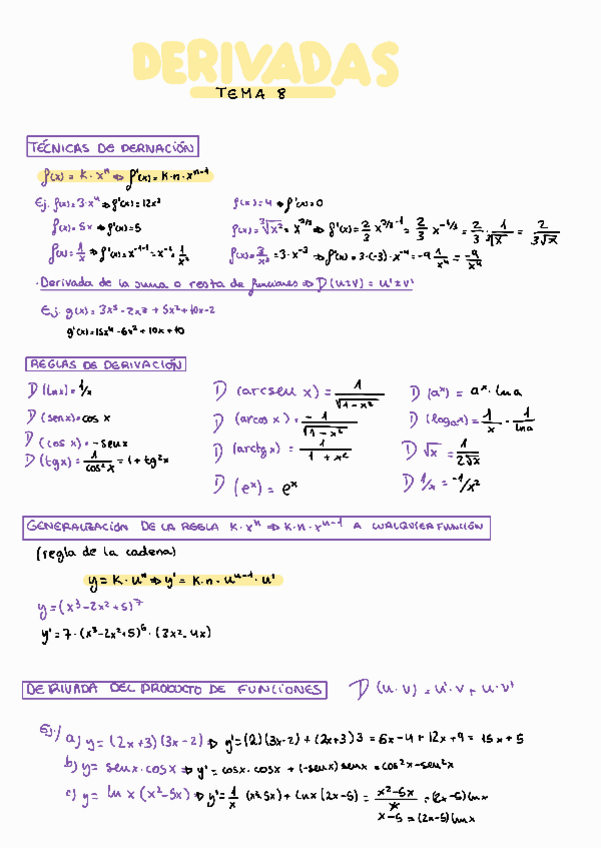 DERIVADAS
TEMA 8
TÉCNICAS DE DERIVACIÓN
f(x) = K · xⁿ ⇒ f'(x) = K·n·xⁿ⁻¹
Ej. f(x) = 3·x⁴ ⇒ f'(x) = 12x³
f(x) = 4 ⇒ f'(x) = 0
f(x) = 5x ⇒ f'(x) = 5
f(x) = ∛x² = x^2/3 ⇒ f'(x) = 2/3 x^2/3-1 = 2/3 x^-1/3 = 2/3 · 1/∛x = 2/3∛x
f(x) = 1/x ⇒ f'(x) = x⁻¹⁻¹ = x⁻² = 1/x²
f(x) = 3/x³ = 3·x⁻³ ⇒ f'(x) = 3·(-3)·x⁻⁴ = -9 1/x⁴ = -9/x⁴
·Derivada de la suma o resta de funciones ⇒ D(u±v) = u'±v'
Ej. g(x) = 3x⁵ - 2x³ + 5x² + 10x - 2
g'(x) = 15x⁴ - 6x² + 10x + 10
REGLAS DE DERIVACIÓN
D (lnx) = 1/x
D (arcsen x) = 1/√1-x²
D (aˣ) = aˣ · ln a
D (senx) = cos x
D (arcos x) = -1/√1-x²
D (logₐx) = 1/x · 1/lna
D (cos x) = -senx
D (arctgx) = 1/1+x²
D √x = 1/2√x
D (tgx) = 1/cos²x = 1 + tg²x
D (eˣ) = eˣ
D 1/x = -1/x²
GENERALIZACIÓN DE LA REGLA K·xⁿ ⇒ K·n·xⁿ⁻¹ A CUALQUIER FUNCIÓN
(regla de la cadena)
y = K · uⁿ ⇒ y' = K·n·uⁿ⁻¹·u'
y = (x³ - 2x² + 5)⁷
y' = 7·(x³-2x²+5)⁶·(3x²-4x)
DERIVADA DEL PRODUCTO DE FUNCIONES D (u·v) = u'·v + u·v'
Ej./ a) y = (2x+3)(3x-2) ⇒ y' = (2)(3x-2) + (2x+3)3 = 6x - 4 + 12x + 9 = 18x + 5
b) y = senx·cosx ⇒ y' = cosx·cosx + (-senx)senx = cos²x - sen²x
c) y = ln x (x²-5x) ⇒ y' = 1/x (x²-5x) + lnx (2x-5) = x²-5x/x = (2x-5) lnx
x-5 = (2x-5) lnx